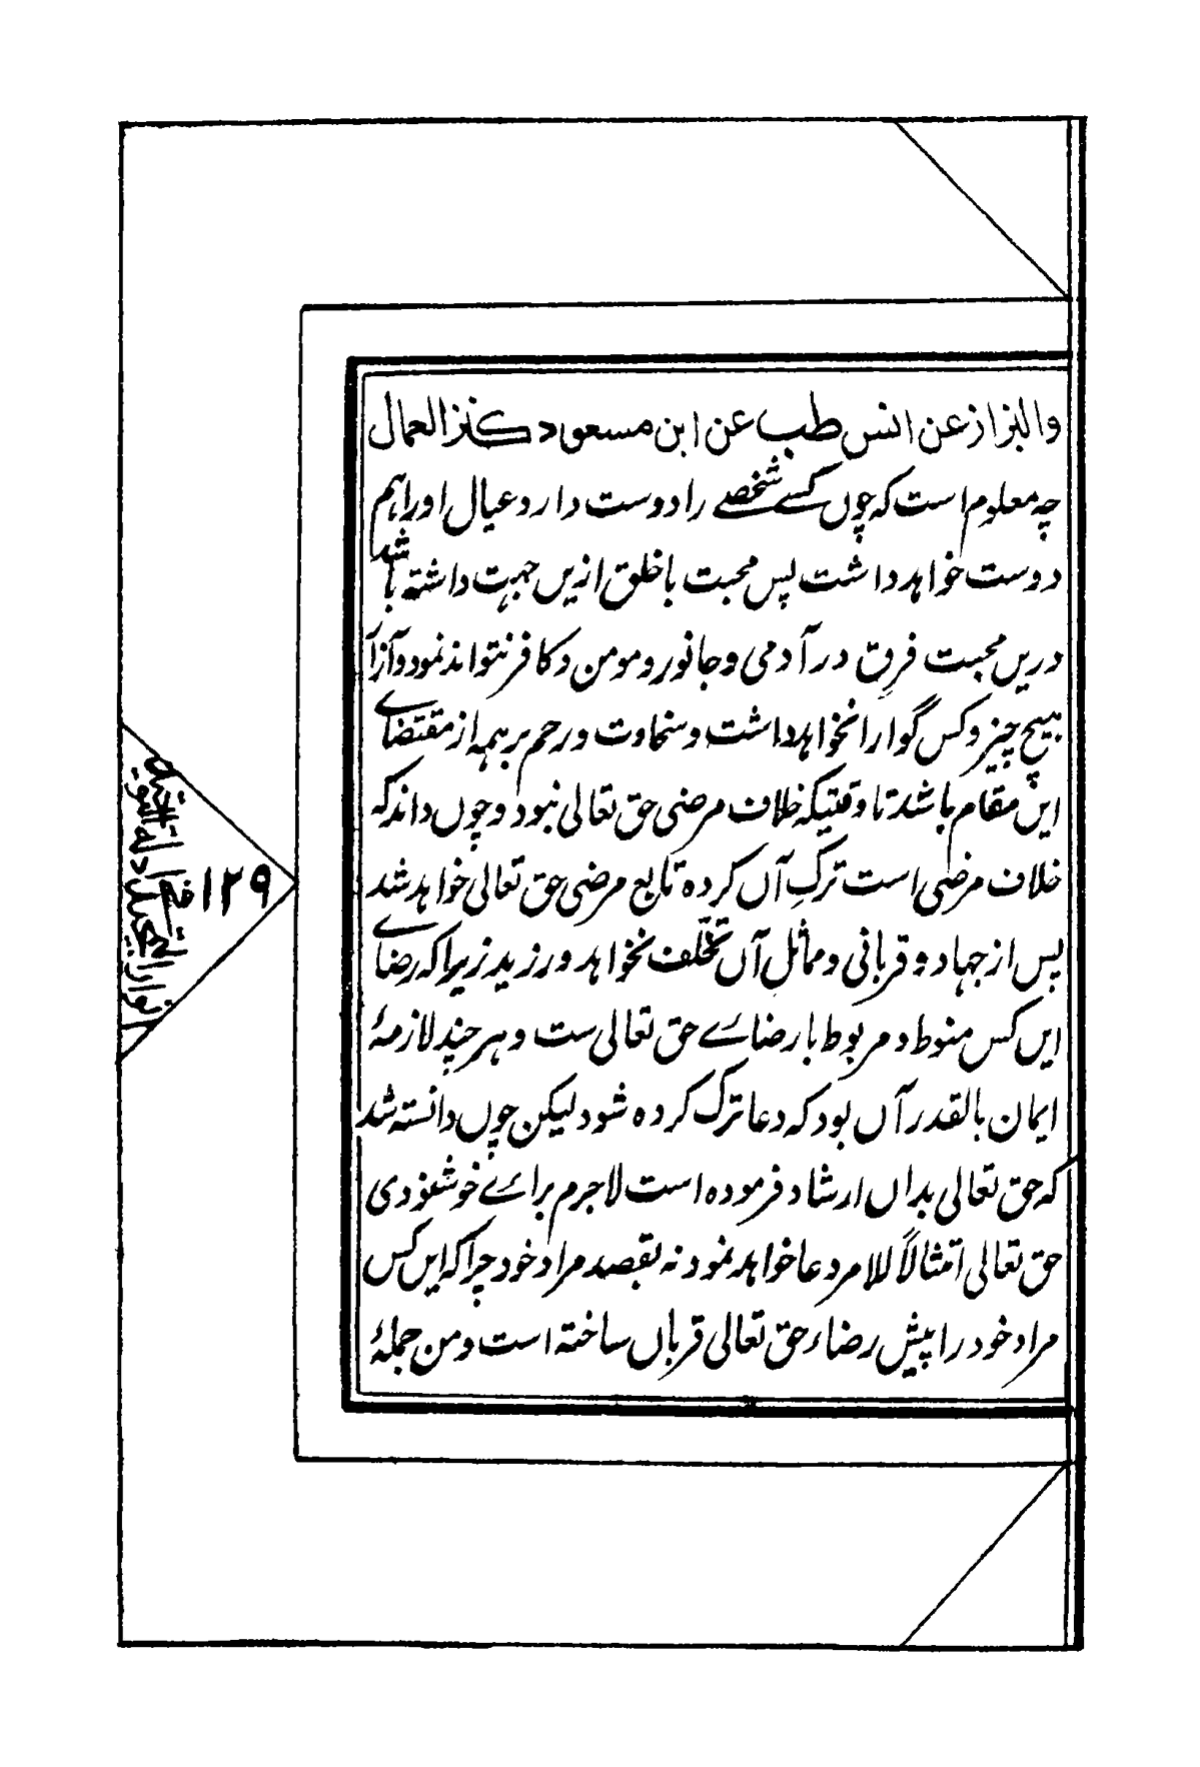 والبزاز عن انس طب عن ابن مسعود کنز العمال
چہ معلوم است کہ چوں کسے شخصے را دوست دارد عیال او را ہم
دوست خواہد داشت پس محبت با خلق ازیں جہت داشتہ باشد
دریں محبت فرق در آدمی و جانور و مومن و کافر نتواند نمود و آزار
ہیچ چیز و کس گوارا نخواہد داشت و سخاوت و رحم بر ہمہ از مقتضاے
ایں مقام باشد تا وقتیکہ خلاف مرضی حق تعالی نبود و چوں داند کہ
خلاف مرضی است ترکِ آں کردہ تابع مرضی حق تعالی خواہد شد
پس از جہاد و قربانی و مماثل آں تخلّف نخواہد ورزید زیرا کہ رضاے
ایں کس منوط و مربوط با رضاے حق تعالی ست و ہر چند لازمۂ
ایمان بالقدر آں بود کہ دعا ترک کردہ شود لیکن چوں دانستہ شد
کہ حق تعالی بداں ارشاد فرمودہ است لاجرم براے خوشنودی
حق تعالی امتثالاً للامر دعا خواہد نمود نہ بقصد مراد خود چرا کہ ایں کس
مراد خود را پیش رضاء حق تعالی قرباں ساختہ است و من جملۂ
۱۲۹
انوار